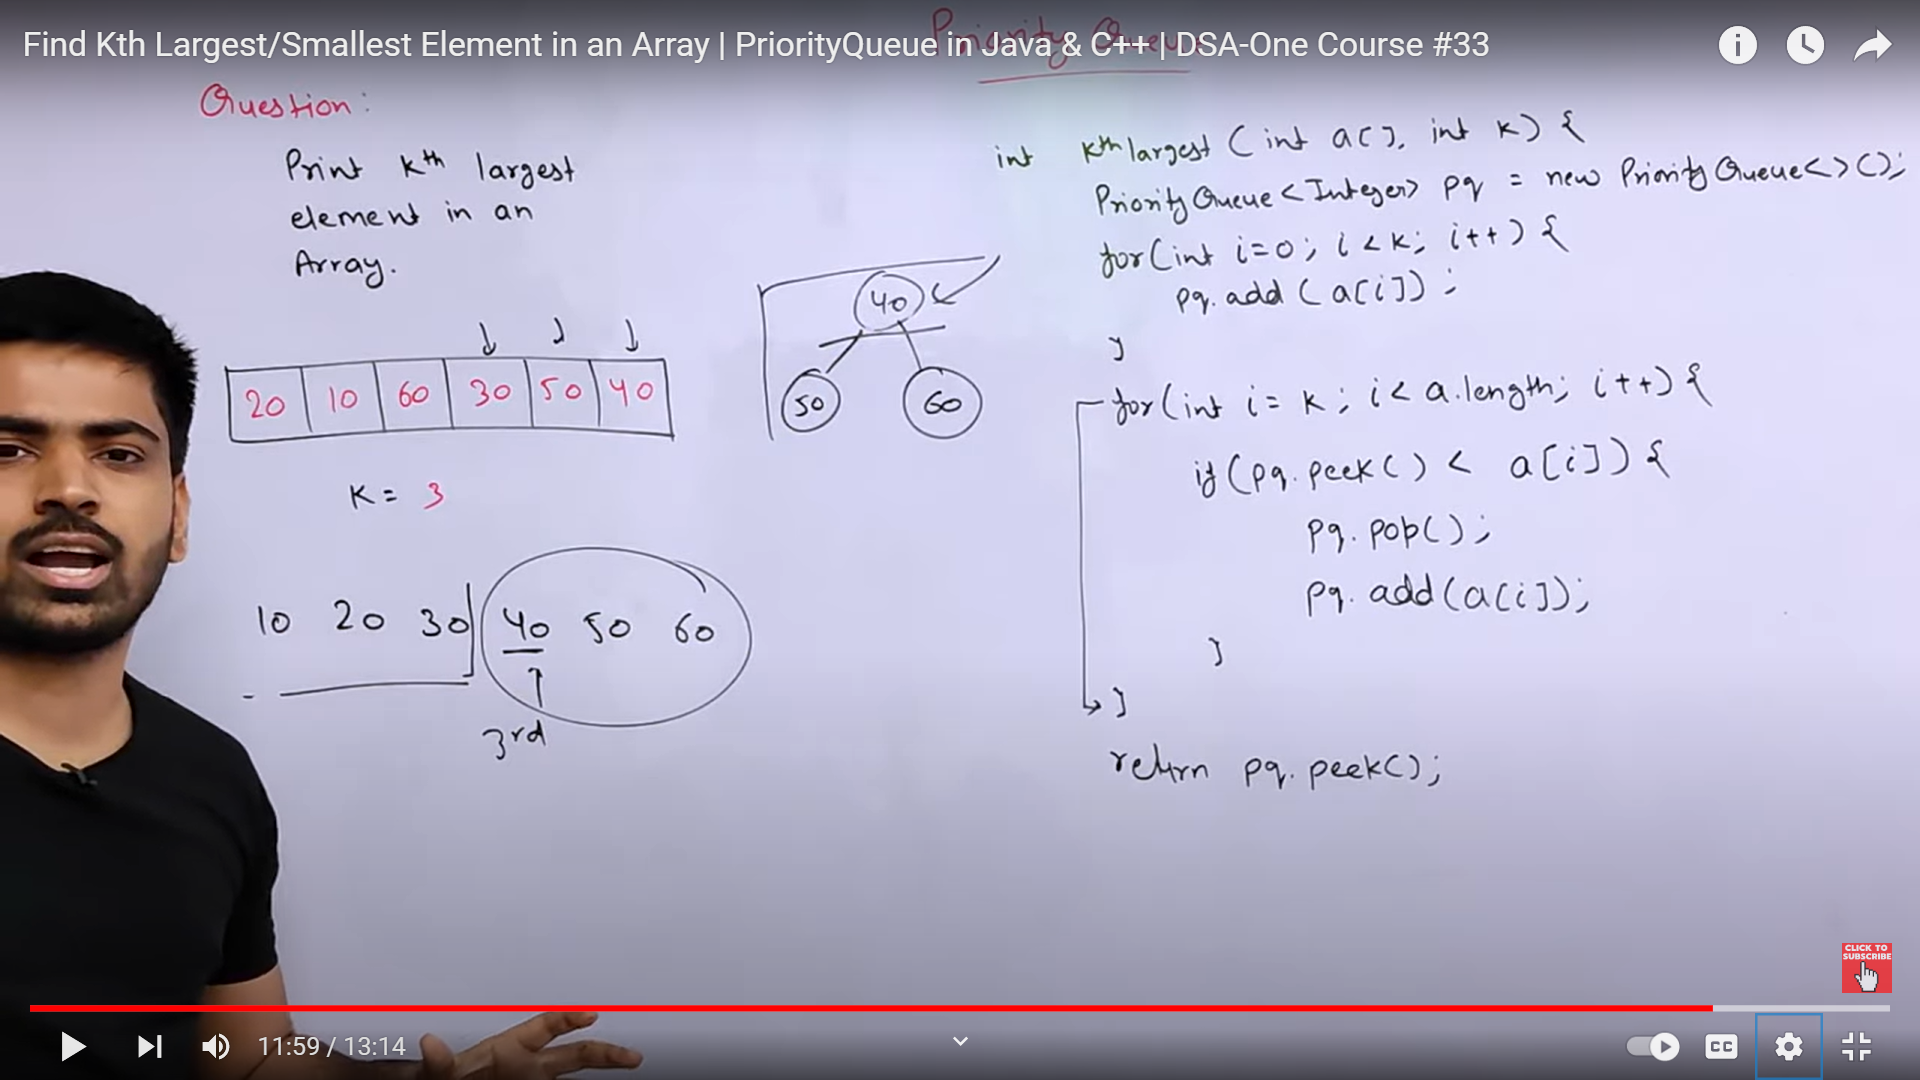 Find Kth Largest/Smallest Element in an Array | PriorityQueue in Java & C++ | DSA-One Course #33
Priority Queue
Question:
Print kth largest
element in an
Array.
20 10 60 30 50 40
K = 3
10 20 30 40 50 60
3rd
40
50 60
int kth largest (int a[], int k) {
PriorityQueue<Integer> pq = new PriorityQueue<>();
for(int i=0; i<k; i++) {
pq.add (a[i]);
}
for(int i= k; i< a.length; i++) {
if(pq.peek() < a[i]) {
pq.pop();
pq.add(a[i]);
}
}
return pq.peek();
CLICK TO
SUBSCRIBE
11:59 / 13:14
CC